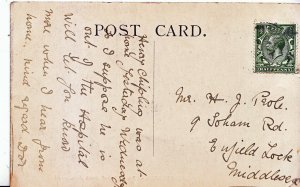 POST CARD.
Henry Chipling was at
home yesterday Wednesday
so I suppose he is
out of the Hospital
will let you know
more when I hear from
home, kind regard Dod
Mr. H. J. Pole.
9 Soham Rd.
Enfield Lock
Middlesex